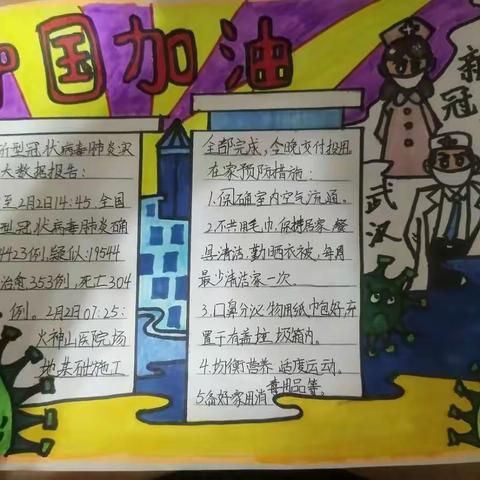 中国加油
新型冠状病毒肺炎实
大数据报告:
至2月2日14:45.全国
型冠状病毒肺炎确
4423例,疑似:19544
治愈353例,死亡304
例。2月2日07:25:
火神山医院场
地基础施工
全部完成,全晚交付投用
在家预防措施:
1.保确室内空气流通。
2.不共用毛巾,保持居家、餐
具清洁,勤晒衣被,每周
最少清洁家一次。
3.口鼻分泌物用纸巾包好,弃
置于有盖垃圾箱内。
4.均衡营养 适度运动。
5.备好家用消
毒用品等。
新冠
武汉